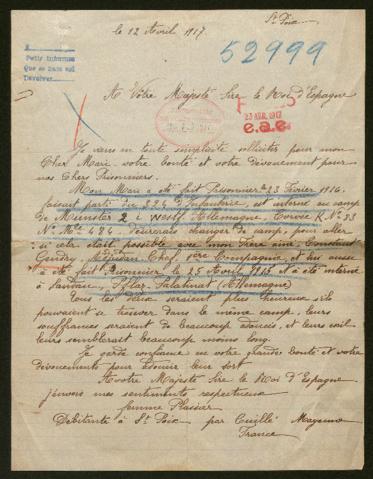 St Poix
le 12 Avril 1917
52999
Petit Informe
Devolver
A Votre Majesté Sire le Roi d'Espagne
23 ABR. 1917
e.a.e.
Je viens en toute simplicité solliciter pour mon
Cher Mari votre bonté et votre dévouement pour
nos Chers Prisonniers.
Mon Mari a été fait Prisonnier le 23 Février 1916.
faisant partie du 224 d'Infanterie, est interné au camp
de Munster 2 i Westf. Allemagne. K. No 33
No Mle 484 changer de camp, pour aller
si cela était possible avec mon frère aîné, Constant
Gendry, Chef, 1ère Compagnie, et lui aussi
a été fait Prisonnier le 25 1915 et a été interné
à Landau, Pflaz Palatinat (Allemagne)
Tous les deux seraient plus heureux s'ils
pouvaient se trouver dans le même camp, leurs
souffrances seraient de beaucoup adoucis, et leurs exil
leurs semblerait beaucoup moins long
Je garde confiance en votre grande bonté et votre
dévouements pour adoucir leur sort
A votre Majesté Sire le Roi d'Espagne
j'envois mes sentiments respectueux
femme Plaisier
Débitante à St Poix par Cuillé Mayenne
France